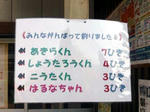 《みんながんばって釣りました!!》
あきらくん 7ひき
しょうたろうくん 4ひき
こうたくん 3ひき
はるなちゃん 3びき